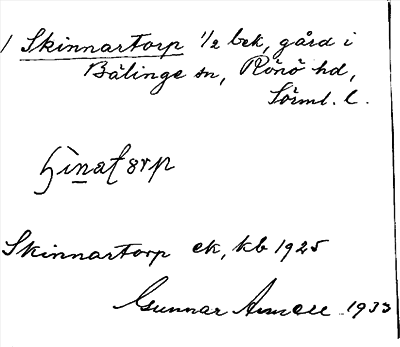 1 Skinnartorp 1/2 bek, gård i
Bälinge sn, Rönö hd,
Sörml. l.
Skinnartorp ek, kb 1925
Gunnar 1933